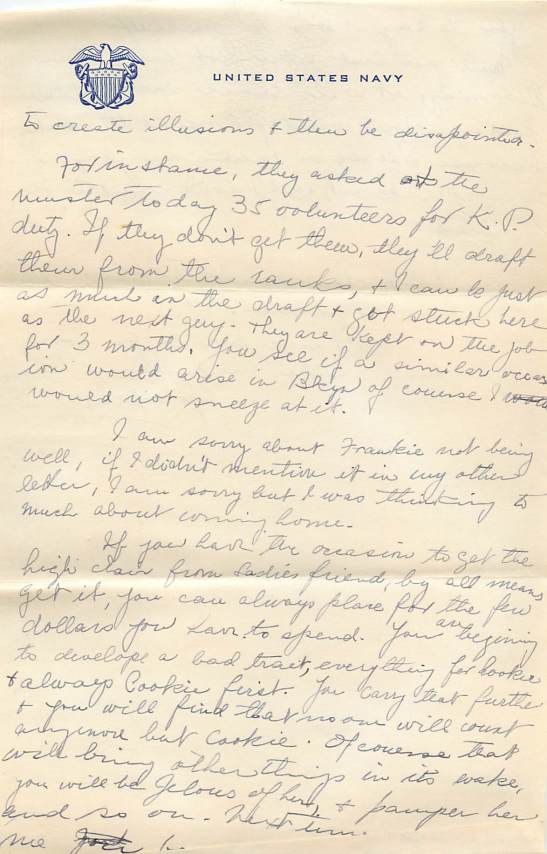 UNITED STATES NAVY
to create illusions & then be disapointed.
For instance, they asked at the
muster today 35 volunteers for K.P.
duty. If they don't get them, they'll draft
them from the ranks, & I can be just
as much in the draft & get stuck here
as the next guy. They are kept on the job
for 3 months. You see if a similar occas
ion would arise in Bklyn of course I
would not sneeze at it.
I am sorry about Frankie not being
well, if I didn't mention it in my other
letter, I am sorry but I was thinking to
much about coming home.
If you have the occasion to get the
high chair from Sadies friend, by all means
get it, you can always place for the few
dollars you have to spend. You are begining
to develope a bad trait, everything for Cookie
& always Cookie first. You carry that further
& you will find that no one will count
anymore but Cookie. Of course that
will bring other things in its wake,
you will be Jelous of her, & pamper her
and so on. Next time.
me